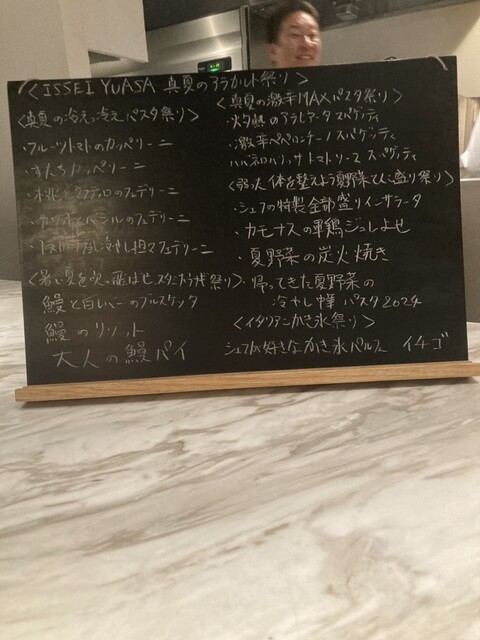 <ISSEI YUASA 真夏のアラカルト祭り>
<真夏の冷えっ冷えパスタ祭り>
・フルーツトマトのカッペリーニ
・すだちカッペリーニ
・桃とのフェデリーニ
・とバジルのフェデリーニ
・冷やし担々フェデリーニ
<暑い夏を吹っ飛ばせスタミナ祭り>
鰻と白レバーのブルスケッタ
鰻のリゾット
大人の鰻パイ
<真夏の激辛MAXパスタ祭り>
・灼熱のアラビアータスパゲティ
・激辛ペペロンチーノスパゲッティ
ハバネロハリッサトマトソーススパゲッティ
<弱った体を整えよう夏野菜てんこ盛り祭り>
・シェフの特製全部盛りインサラータ
・カモナスの軍鶏ジュレよせ
・夏野菜の炭火焼き
・帰ってきた夏野菜の
冷やし中華パスタ2024
<イタリアンかき氷祭り>
シェフが好きなかき氷パルフェ イチゴ